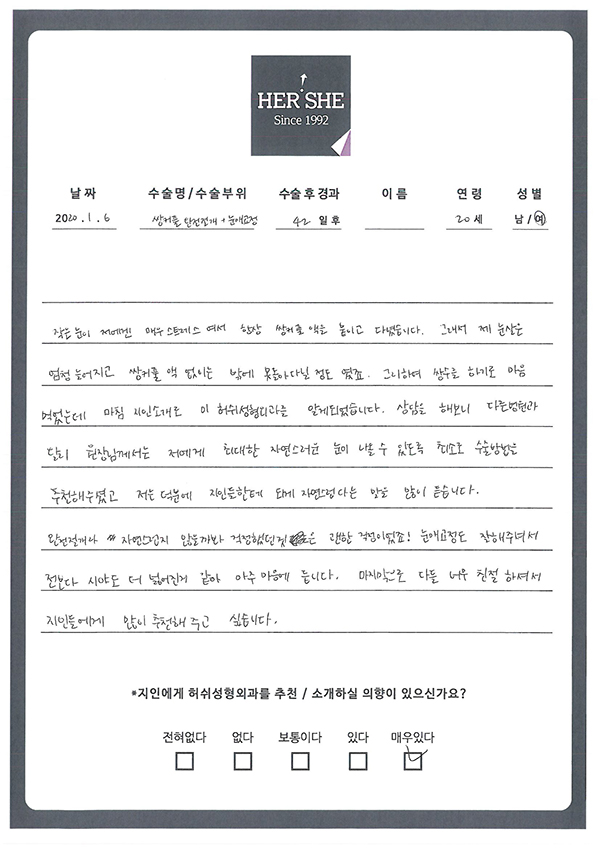 HER SHE
Since 1992
날 짜 수술명/수술부위 수술후경과 이 름 연 령 성 별
2020.1.6 쌍커풀 완전절개 + 눈매교정 42 일 후 20 세 남/여
작은 눈이 저에겐 매우 스트레스 여서 항상 쌍커풀 액을 붙이고 다녔습니다. 그래서 제 눈살은
엄청 늘어지고 쌍커풀 액 없이는 밖에 못돌아다닐 정도 였죠. 그리하여 쌍수를 하기로 마음
먹었는데 마침 지인소개로 이 허쉬성형외과를 알게되었습니다. 상담을 해보니 다른병원과
달리 원장님께서는 저에게 최대한 자연스러운 눈이 나올 수 있도록 최소로 수술방법을
추천해주셨고 저는 덕분에 지인들한테 되게 자연스럽다는 말을 많이 듣습니다.
완전절개라 자연스럽지 않을까봐 걱정했던것은 괜한 걱정이었죠! 눈매교정도 잘해주셔서
전보다 시야도 더 넓어진거 같아 아주 마음에 듭니다. 마지막으로 다들 너무 친절 하셔서
지인들에게 많이 추천해 주고 싶습니다.
*지인에게 허쉬성형외과를 추천 / 소개하실 의향이 있으신가요?
전혀없다 없다 보통이다 있다 매우있다